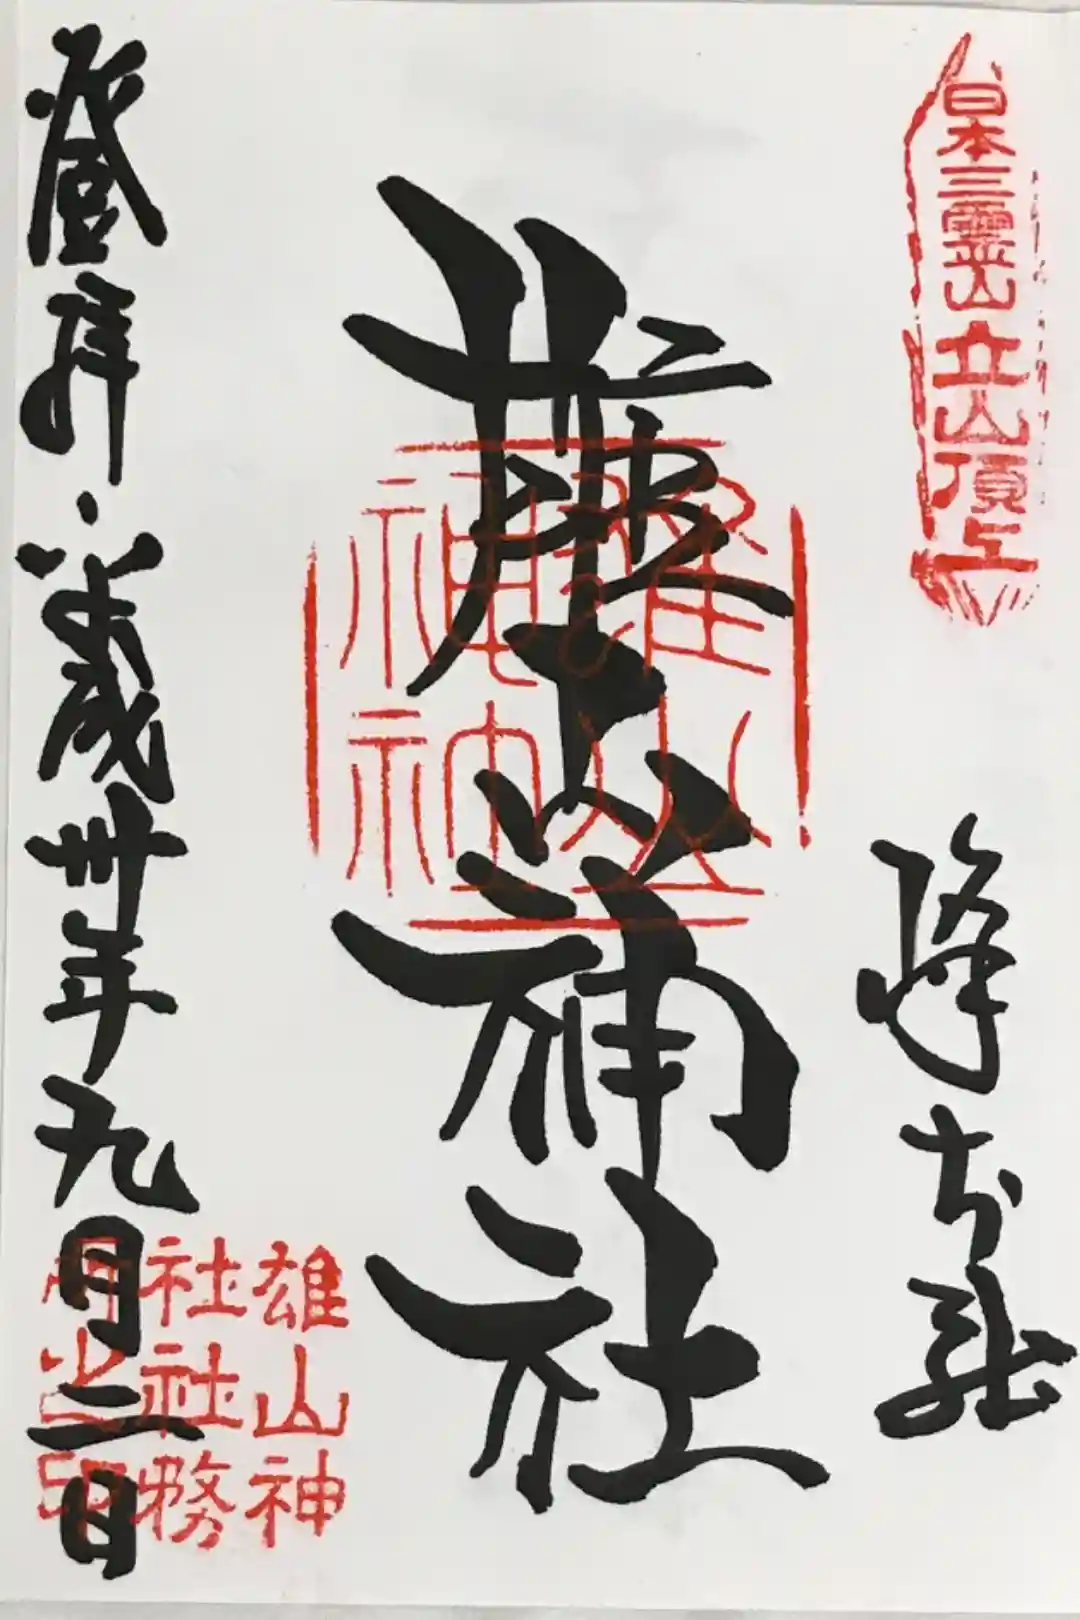 日本三靈山立山頂上
峰本
雄山神社
登拝
平成卅年九月二日
雄山神
社社務
所之印